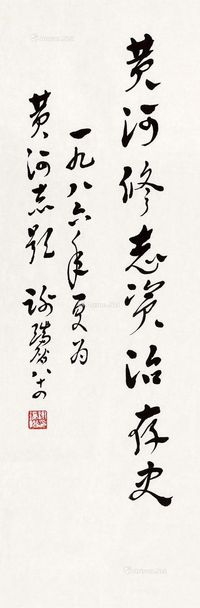 黄河修志资治存史
一九八六年夏为
黄河志题 谢瑞阶八十四